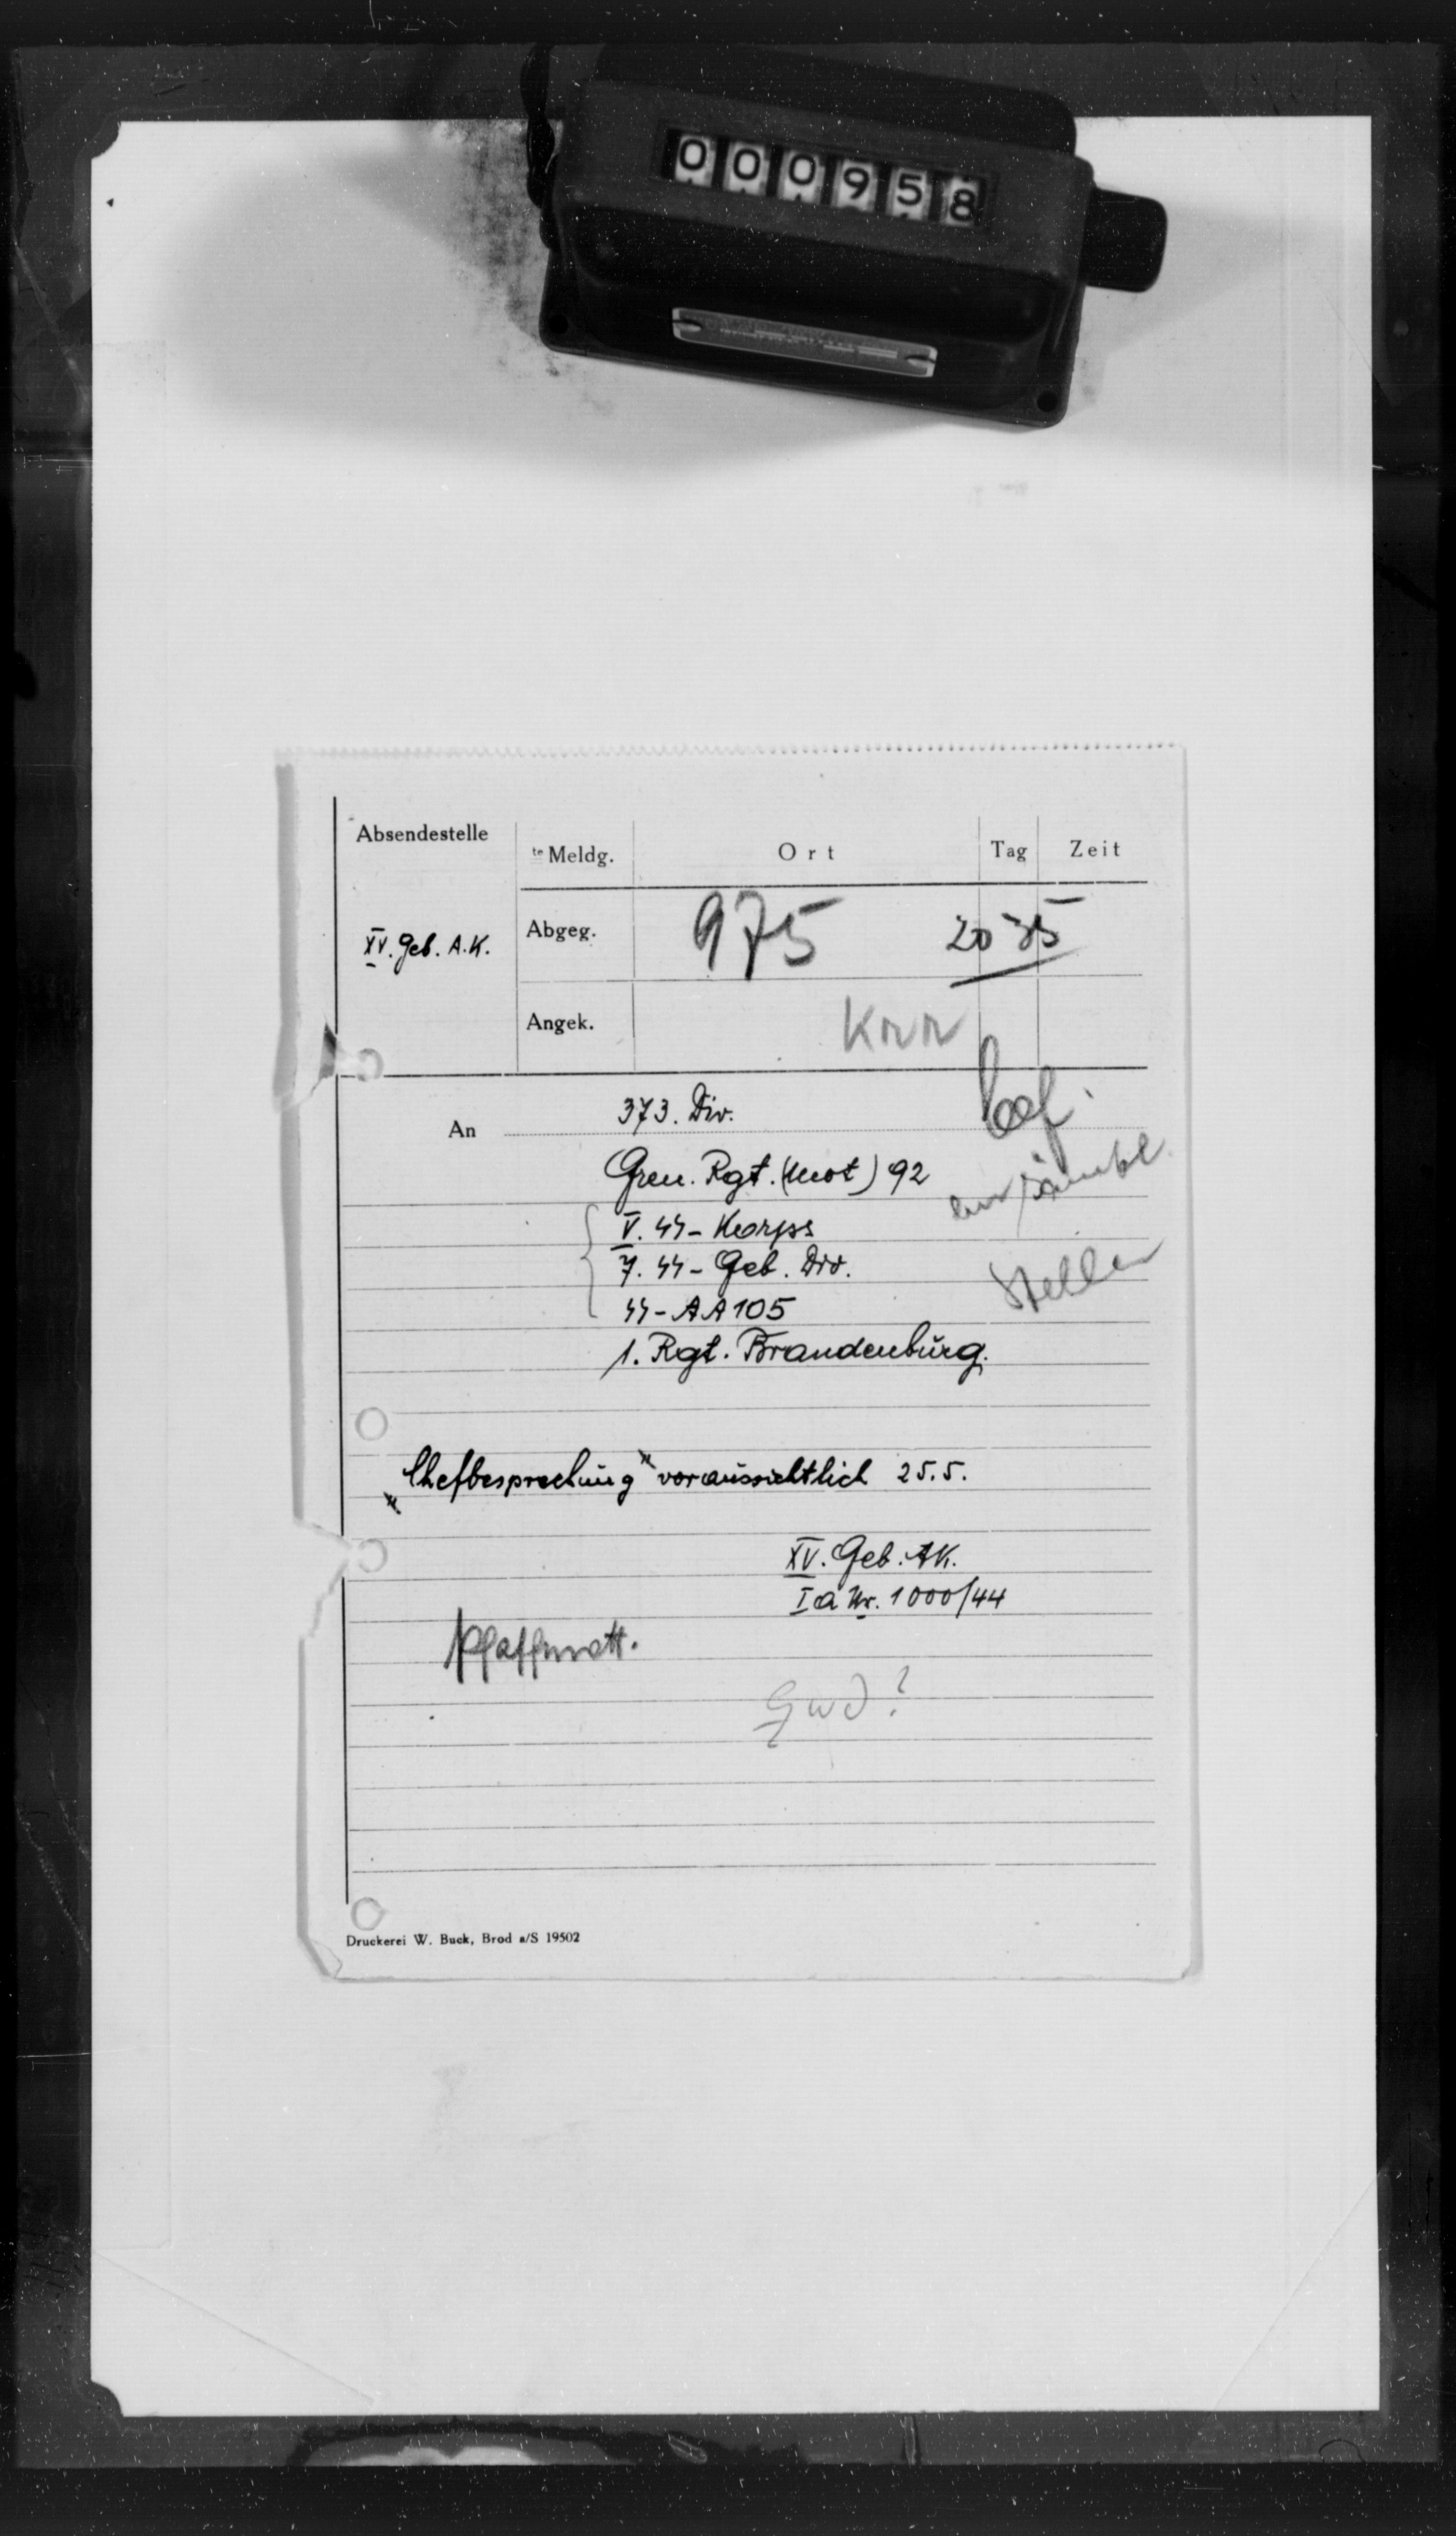 000958
Absendestelle
te Meldg. Ort Tag Zeit
XV. Geb. A.K.
Abgeg. 975 20 35
Angek.
An 373. Div.
Gren. Rgt. (mot) 92
V. SS-Korps
7. SS-Geb. Div.
SS-AA 105
1. Rgt. Brandenburg.
Stellen
"Chefbesprechung" voraussichtlich 25.5.
XV. Geb. AK.
Ia Nr. 1000/44
Druckerei W. Buck, Brod a/S 19502